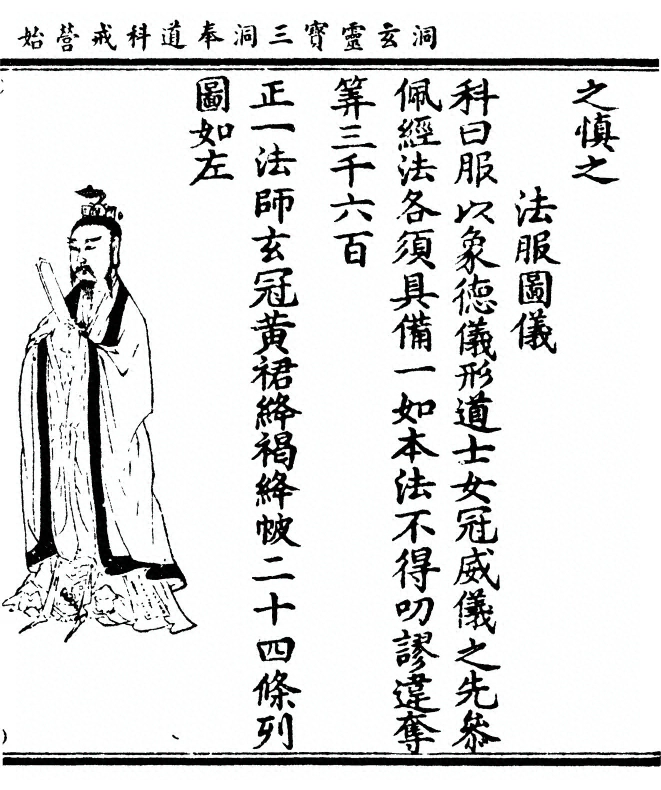 洞玄靈寶三洞奉道科戒營始
之慎之
法服圖儀
科曰服以象德儀形道士女冠威儀之先參
佩經法各須具備一如本法不得叨謬違奪
筭三千六百
正一法師玄冠黃裙絳褐絳帔二十四條列
圖如左